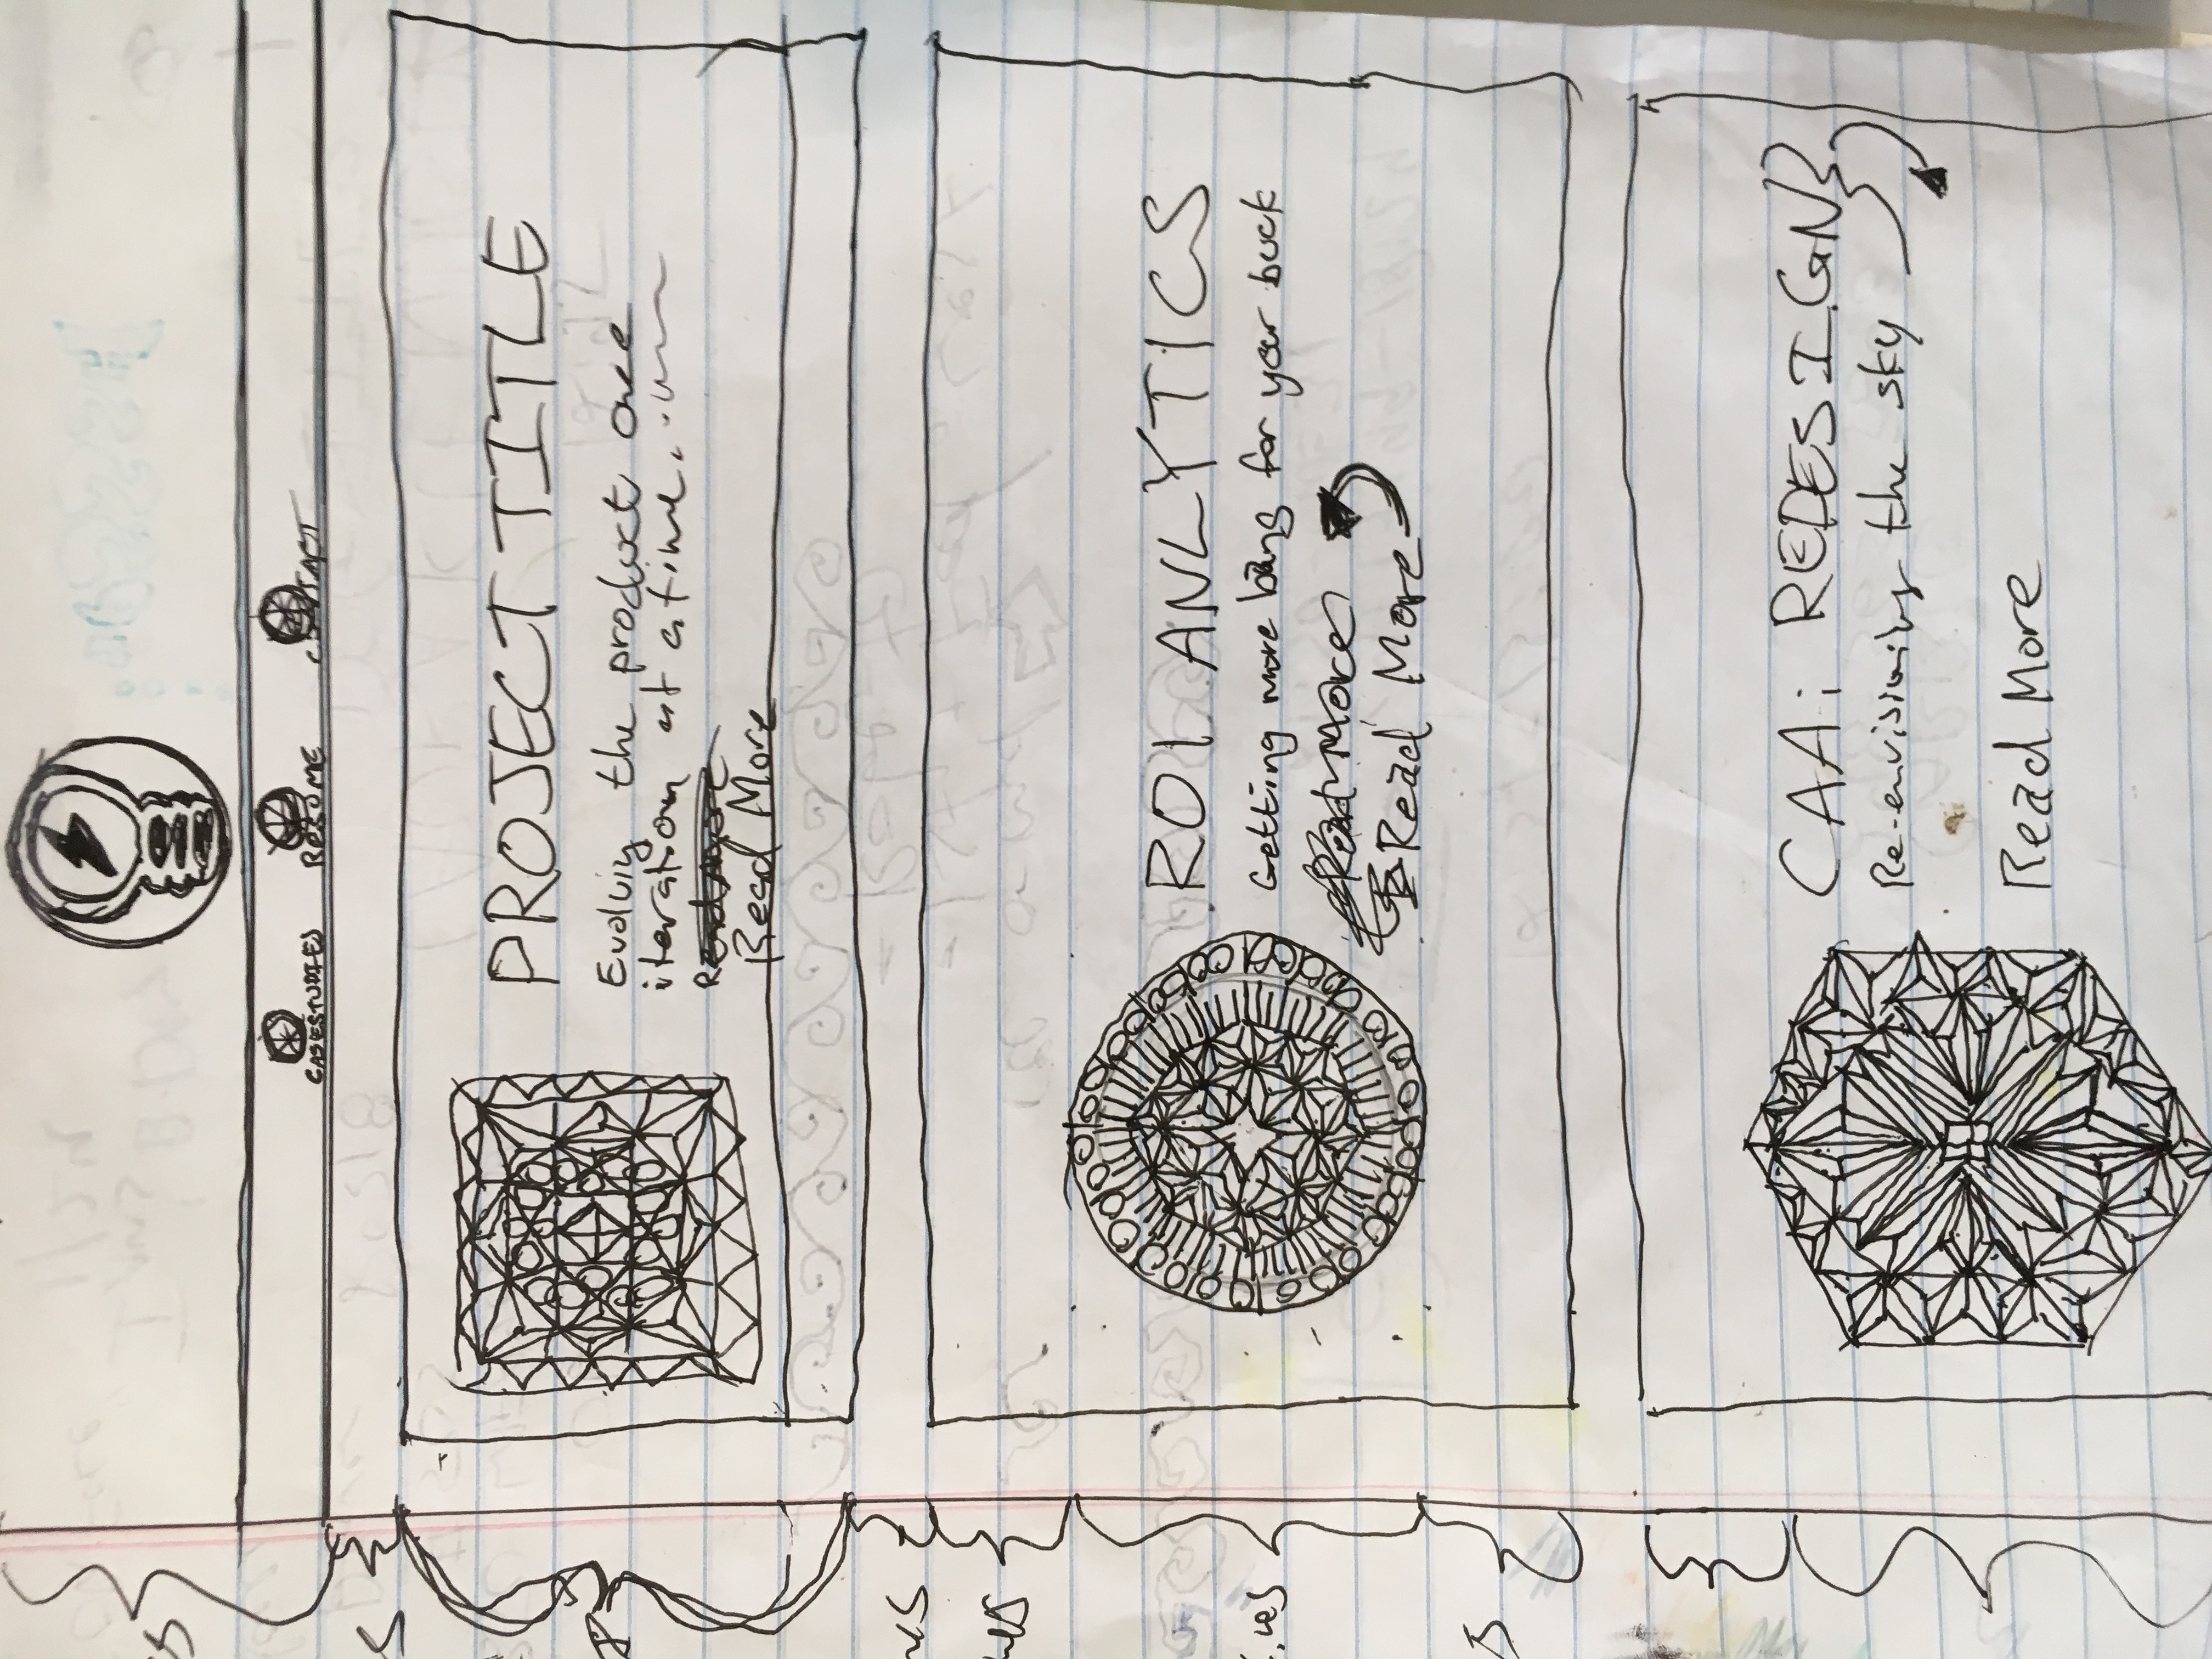 CASESTUDIES RESUME CONTACT
PROJECT TITLE
Evolvig the product one
iteration at a time.
Read More
Read More
ROI ANLYTICS
Getting more bang for your buck
Read More
Read More
CAAi REDESIGN
Re-envisioning the sky
Read More